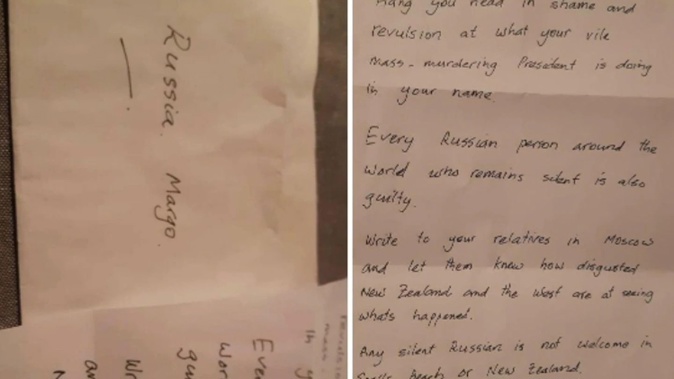 Russia. Margo.
Hang you head in shame and
revulsion at what your vile
mass-murdering President is doing
in your name.
Every Russian person around the
world who remains silent is also
guilty.
Write to your relatives in Moscow
and let them know how disgusted
New Zealand and the West are at seeing
whats happened.
Any silent Russian is not welcome in
beach or New Zealand.
in y
Eve
wor
gu
Wr
an
N